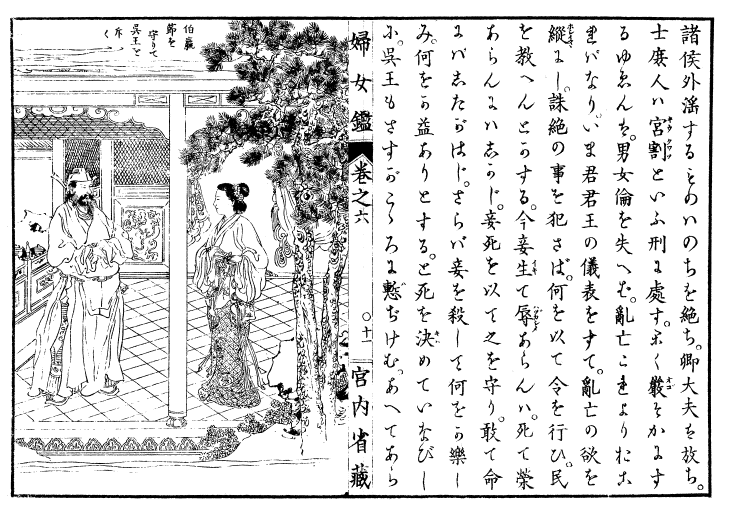 諸侯外淫するものいのちを絶ち。卿大夫を放ち。
士庶人ハ宮割といふ刑に處す。かく嚴そかにす
るゆゑんは。男女倫を失へバ。亂亡これよりおこ
ればなり。いま君君王の儀表をすて。亂亡の欲を
縱にし。誅絶の事を犯さば。何を以て令を行ひ。民
を教へんとかする。今妾生て辱あらんハ。死て榮
あらんにハしかじ。妾死を以て之を守り。敢て命
にハしたがはじ。さらバ妾を殺して何をか樂し
み。何をか益ありとする。と死を決めていなびし
に。呉王もさすがこゝろに慙ぢけむ。あへてあら
婦女鑑 卷之六 〇十一 宮内省藏
伯嬴
節を
守りて
呉王を
斥く